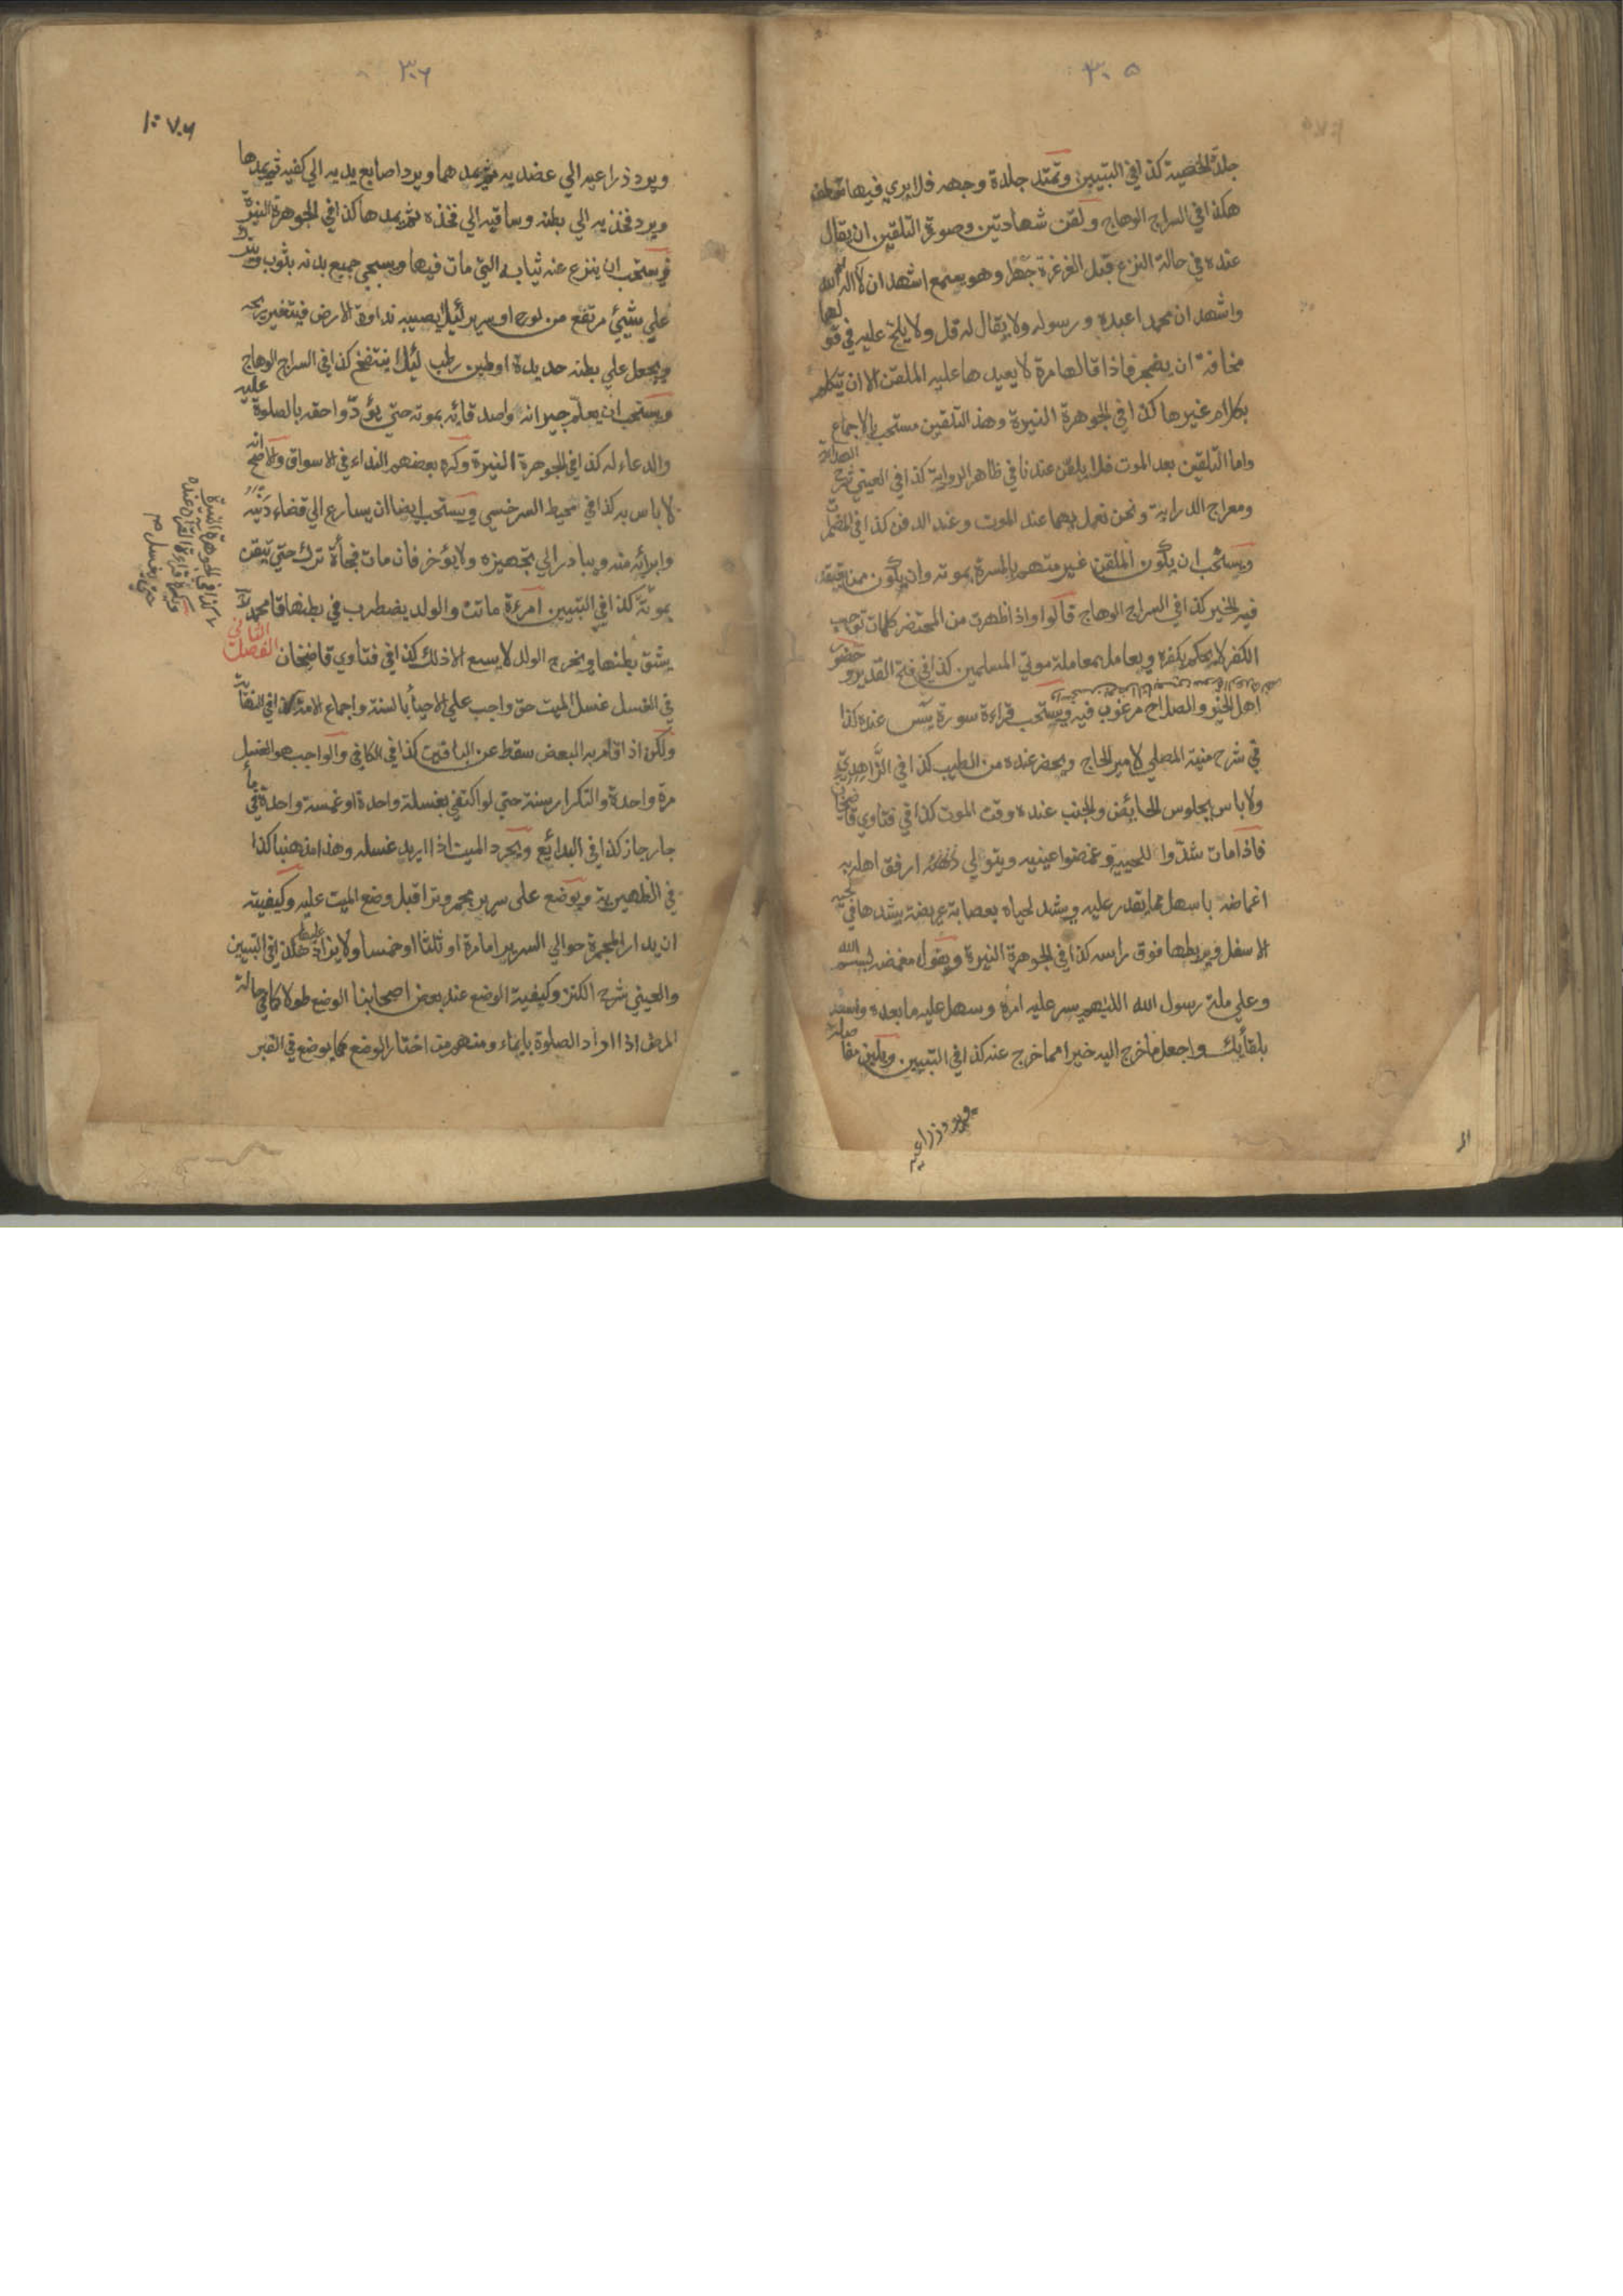 ٣٠٥
جلدة الخصية كذا في التبيين وتمتد جلدة وجهه فلا يري فيها تعطف
هكذا في السراج الوهاج ولقن شهادتين وصورة التلقين ان يقال
عنده في حالة النزع قبل الغرغرة جهرا وهو يسمع اشهد ان لا اله الا الله
واشهد ان محمدا عبده ورسوله ولا يقال له قل ولا يلح عليه في قولها
مخافة ان يضجر فاذا قالها مرة لا يعيدها عليه الملقن الا ان يتكلم
بكلام غيرها كذا في الجوهرة النيرة وهذا التلقين مستحب بالاجماع
واما التلقين بعد الموت فلا يلقن عندنا في ظاهر الرواية كذا في العيني شرح الهداية
ومعراج الدراية ونحن نعمل بهما عند الموت وعند الدفن كذا في المضمرات
ويستحب ان يكون الملقن غير متهم بالمسرة بموته وان يكون ممن يعتقد
فيه الخير كذا في السراج الوهاج قالوا واذا ظهرت من المحتضر كلمات توجب
الكفر لا يحكم بكفره ويعامل معاملة موتي المسلمين كذا في فتح القدير وحضور
اهل الخير والصلاح مرغوب فيه ويستحب قراءة سورة يس عنده كذا
في شرح منية المصلي لامير الحاج ويحضر عنده من الطيب كذا في الزاهدي
ولا باس بجلوس الحائض والجنب عنده وقت الموت كذا في فتاوي قاضيخان
فاذا مات شدوا لحييه وغمضوا عينيه ويتولي ارفق اهله به
اغماضه باسهل مما يقدر عليه ويشد لحياه بعصابة عريضة يشدها في لحيه
الاسفل ويربطها فوق راسه كذا في الجوهرة النيرة ويقول مغمضه بسم الله
وعلي ملة رسول الله اللهم يسر عليه امره وسهل عليه ما بعده واسعده
بلقائك واجعل ما خرج اليه خيرا مما خرج عنه كذا في التبيين ويلين مفاصله
ويرد ذراعيه
٣٠٦
ويرد ذراعيه الي عضديه ثم يمدهما ويرد اصابع يديه الي كفيه ثم يمدها
ويرد فخذيه الي بطنه وساقيه الي فخذه ثم يمدها كذا في الجوهرة النيرة
ويستحب ان ينزع عنه ثيابه التي مات فيها ويسجي جميع بدنه بثوب ويترك
علي شيئ مرتفع من لوح او سرير لئلا يصيبه نداوة الارض فيتغير ريحه
ويجعل علي بطنه حديدة او طين رطب لئلا ينتفخ كذا في السراج الوهاج
ويستحب ان يعلم جيرانه واصدقائه بموته حتي يؤدوا حقه بالصلوة عليه
والدعاء له كذا في الجوهرة النيرة وكره بعضهم النداء في الاسواق والاصح انه
لا باس به كذا في محيط السرخسي ويستحب ايضا ان يسارع الي قضاء دينه
وابرائه منه ويبادر الي تجهيزه ولا يؤخر فان مات فجأة ترك حتي تيقن
بموته كذا في التبيين امرءة ماتت والولد يضطرب في بطنها قال محمد
يشق بطنها ويخرج الولد لا يسع الا ذلك كذا في فتاوي قاضيخان الفصل الثاني
في الغسل غسل الميت حق واجب علي الاحياء بالسنة واجماع الامة كذا في النقاية
ولكن اذا قام به البعض سقط عن الباقين كذا في الكافي والواجب هو الغسل
مرة واحدة والتكرار سنة حتي لو اكتفي بغسلة واحدة او غمسة واحدة في ماء
جار جاز كذا في البدائع ويجرد الميت اذا اريد غسله وهذا مذهبنا كذا
في الظهيرية ويوضع على سرير مجمر وترا قبل وضع الميت عليه وكيفيته
ان يدار المجمرة حوالي السرير اما مرة او ثلثا او خمسا ولا يزاد عليها هكذا في التبيين
والعيني شرح الكنز وكيفية الوضع عند بعض اصحابنا الوضع طولا كما في حالة
المرض اذا اراد الصلوة بايماء ومنهم من اختار الوضع كما يوضع في القبر
كذا في الجوهرة النيرة
ويكره قراءة القرآن عنده
حتي يغسل